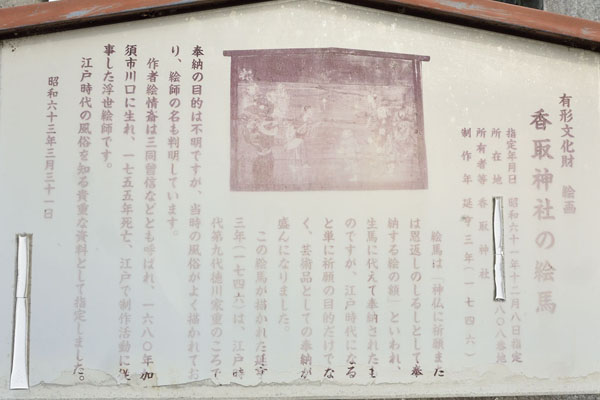 有形文化財　絵画
香取神社の絵馬
指定年月日　昭和六十一年十二月八日指定
所在地　八〇八番地
所有者等　香取神社
制作年　延享三年（一七四六）
絵馬は「神仏に祈願また
は恩返しのしるしとして奉
納する絵の額」といわれ、
生馬に代えて奉納されたも
のですが、江戸時代になる
と単に祈願の目的だけでな
く、芸術品としての奉納が
盛んになりました。
この絵馬が描かれた延享
三年（一七四六）は、江戸時
代第九代徳川家重のころで
奉納の目的は不明ですが、当時の風俗がよく描かれてお
り、絵師の名も判明しています。
作者絵情斎は三同曽信などとも呼ばれ、一六八〇年加
須市川口に生れ、一七五五年死亡、江戸で制作活動に従
事した浮世絵師です。
江戸時代の風俗を知る貴重な資料として指定しました。
昭和六十三年三月三十一日